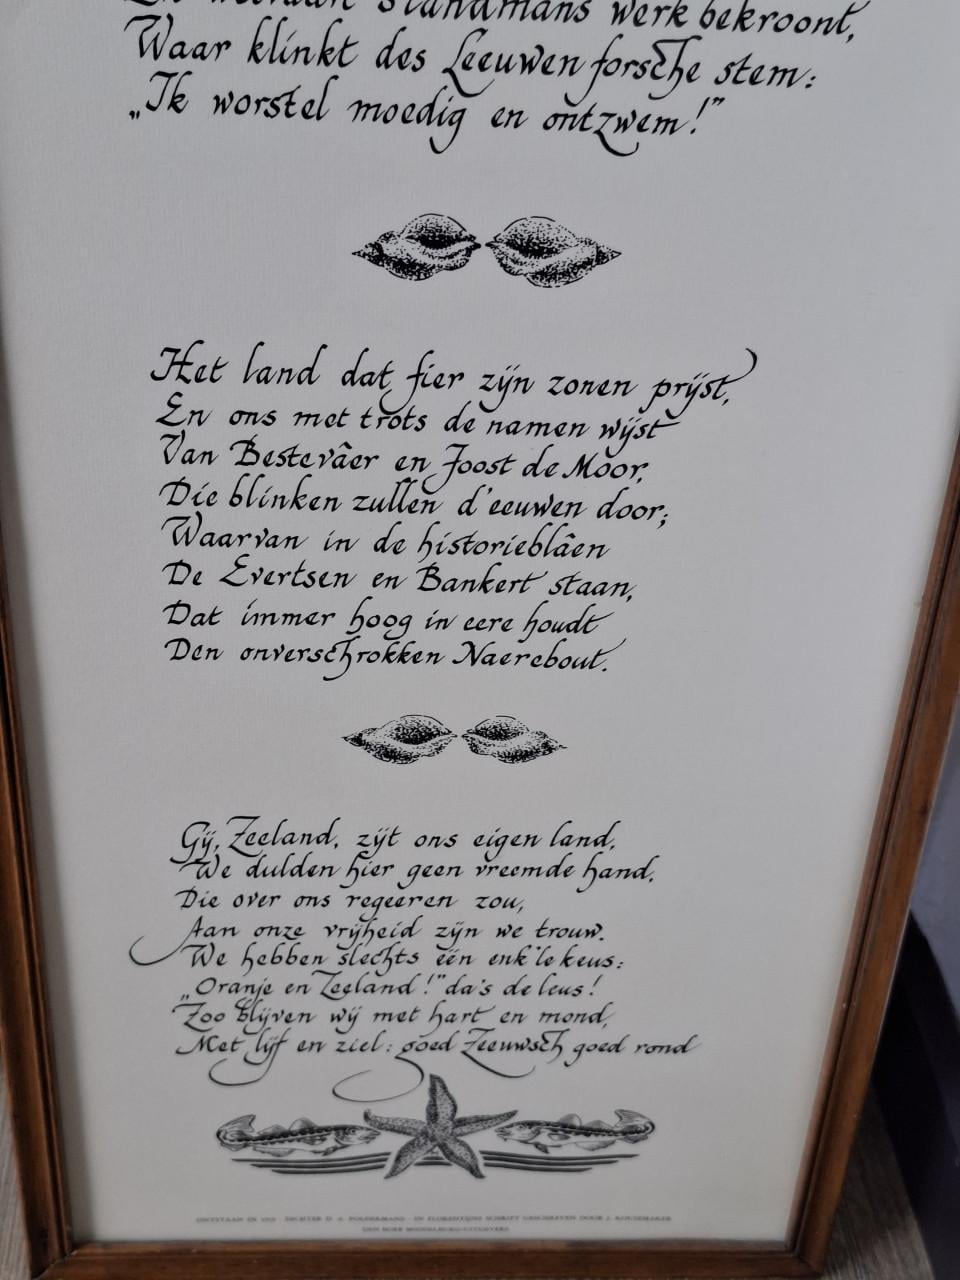 werk bekroont,
Waar klinkt des Leeuwen forsche stem:
„Ik worstel moedig en ontzwem!”
Het land dat fier zijn zonen prijst,
En ons met trots de namen wijst
Van Bestevâer en Joost de Moor,
Die blinken zullen d'eeuwen door;
Waarvan in de historieblâen
De Evertsen en Bankert staan,
Dat immer hoog in eere houdt
Den onverschrokken Naerebout.
Gij, Zeeland, zijt ons eigen land,
We dulden hier geen vreemde hand,
Die over ons regeeren zou,
Aan onze vrijheid zijn we trouw.
We hebben slechts één enk'le keus:
„Oranje en Zeeland!” da's de leus!
Zoo blijven wij met hart en mond,
Met lijf en ziel: goed Zeeuwsch goed rond
ONTSTAAN IN DICHTER D. A. POLDERMANS - IN FLORENTIJNS SCHRIFT GESCHREVEN DOOR J.
DEN BOER MIDDELBURG/UITGEVERS